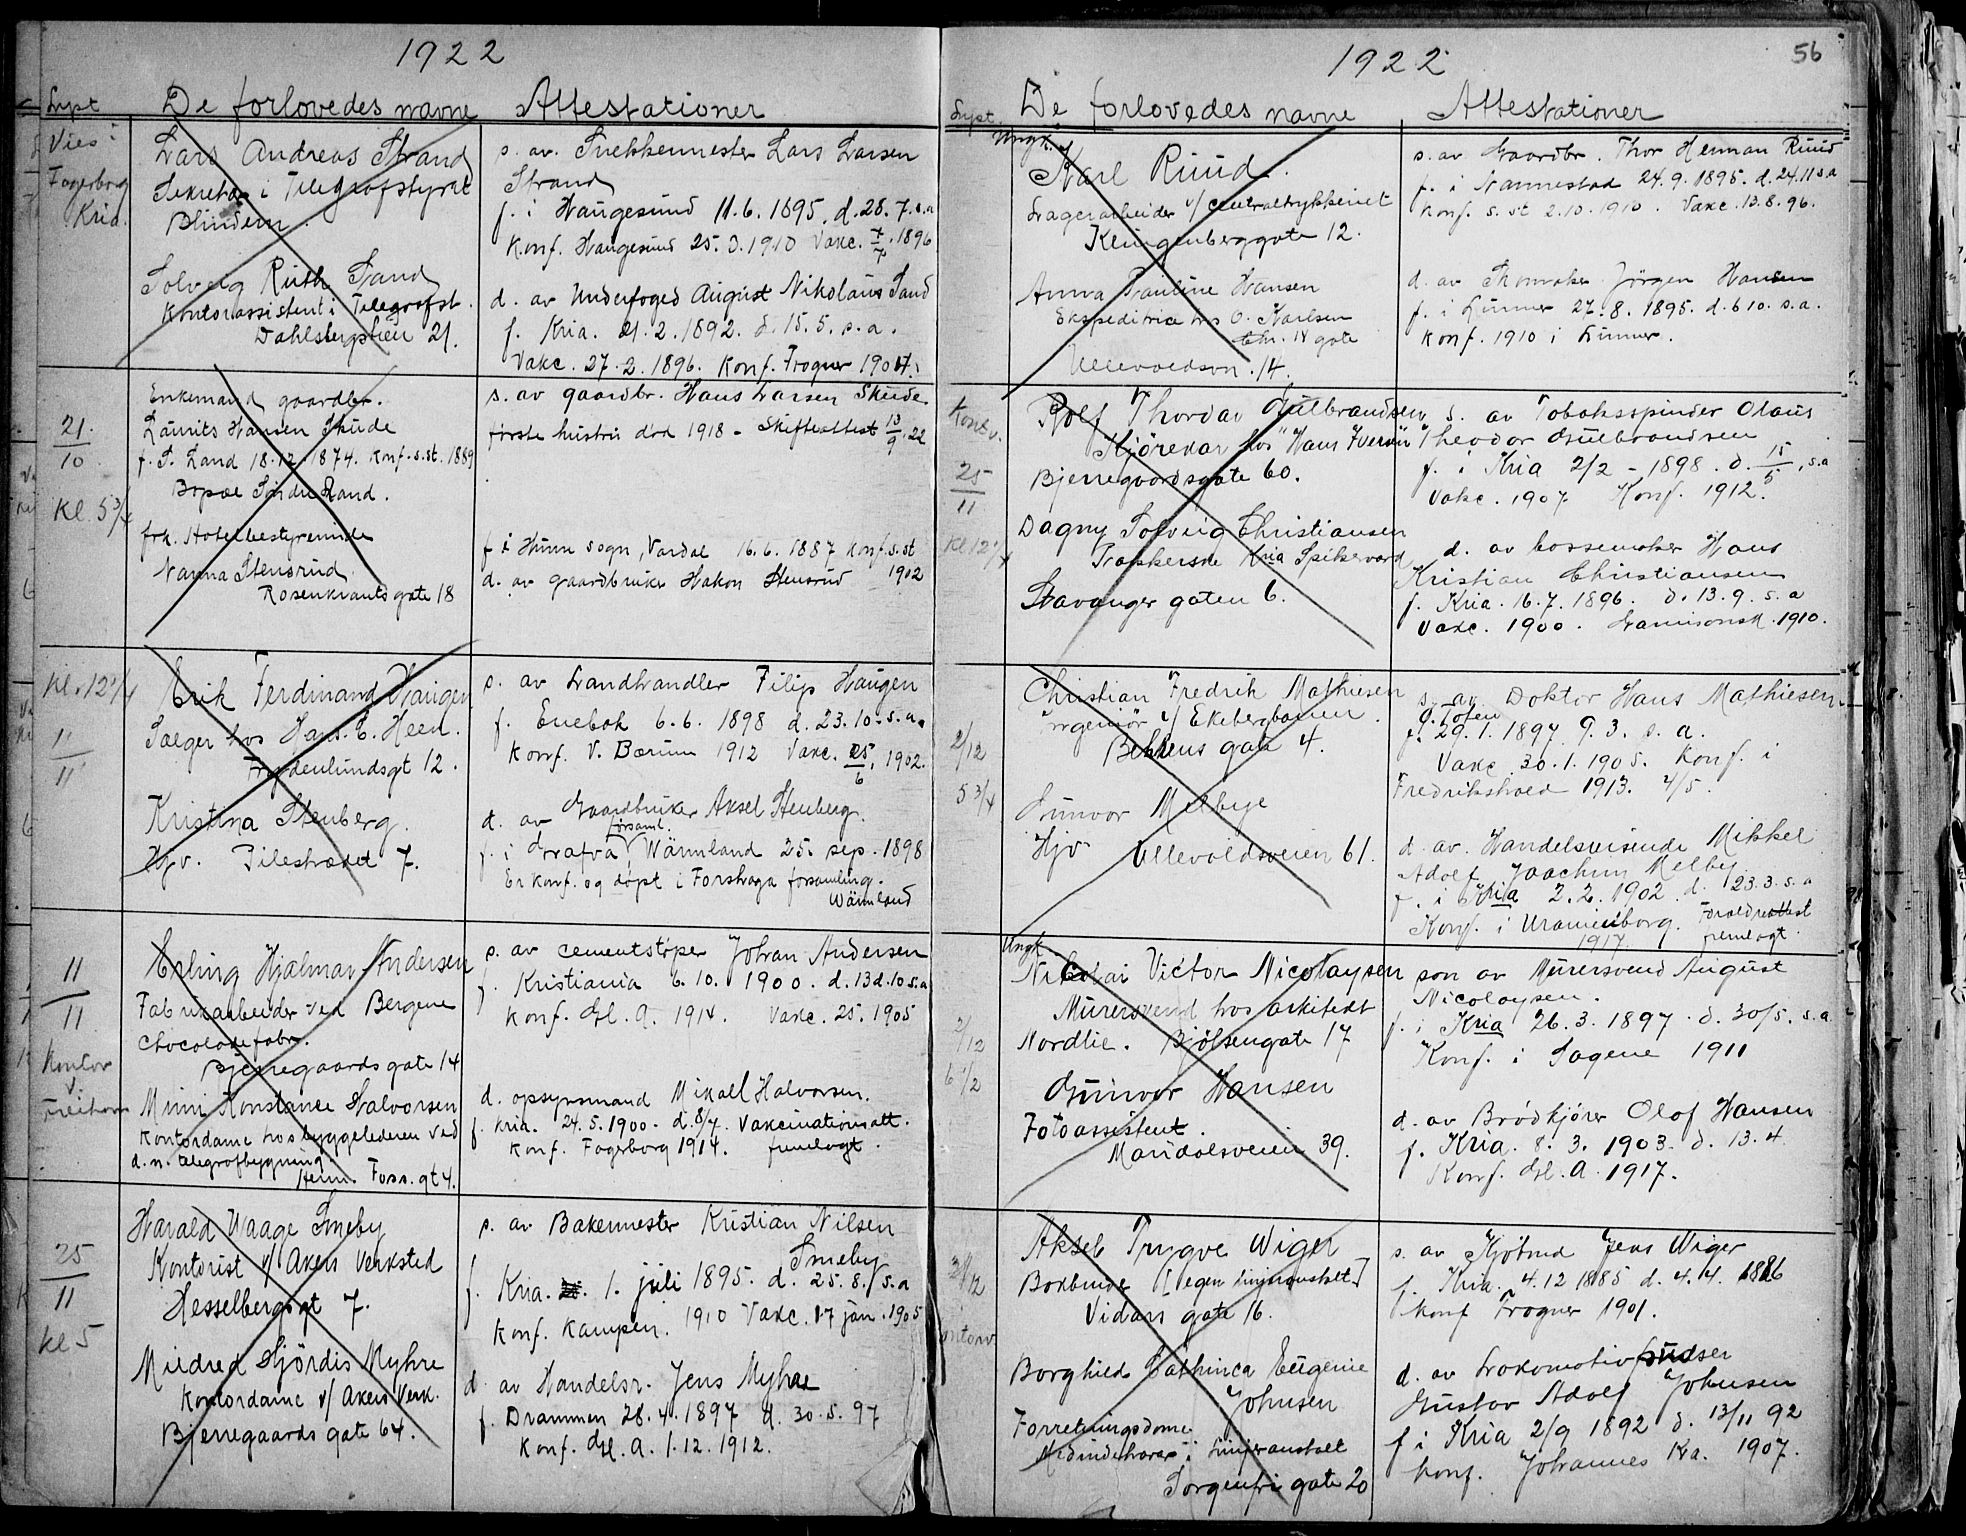 1922
Sept De forlovedes navne Attestationer
Vies i
Fagerborg
Kria.
Lars Andreas Strand
Sekretær i Telegrafstyret
Blindern.
Solveig Ruth Sand
Kontorassistent i Telegrafst.
Dahlsbergstien 21.
s. av. Snekkermester Lars Larsen
Strand
f. i Haugesund 11.6.1895. d. 28.7. s.a
Konf. Haugesund 25. 1910 Vakc. 7/7. 1896
d. av Underfoged August Nikolaus Sand
f. Kria. 21.2.1892. d. 15.5. s.a.
Vakc. 27.2.1896. Konf. Frogner 1907.
21/10
Kl. 5 3/4
Enkemand gaardbr.
Laurits Hansen Skude
f. S. Land 18.12.1874. Konf. s.st. 1889
Bopæl Søndre Land.
frk. Hotelbestyrerinde
Nanna Stensrud
Rosenkrantsgate 18
s. av gaardbr. Hans Larsen Skude
første hustru død 1918 - Skifteattest 13/9.22
f. i Hunn sogn, Vardal 16.6.1887 Konf. s.st
1902
d. av gaardbruker Hakon Stensrud
Kl. 12 1/4
11/11
Erik Ferdinand Haugen
Sælger hos Hans. E. Heen.
Frydenlundsgt 12.
Kristina Stenberg.
Hjv. Pilestrædet 7.
s. av Landhandler Filip Haugen
f. Enebak 6.6.1898 d. 23.10. s.a.
Konf. V. Bærum 1912 Vakc. 25/6. 1902.
d. av Gaardbruker Aksel Stenberg.
forsaml.
f. i Grafva Wärmland 25. sep. 1898
Er konf. og døpt i Forshaga forsamling.
Wärmland
11/11
Kontor
v.
Erling Hjalmar Andersen
Fabrikarbeider ved Bergene
Chocoladefabr.
Bjerregaards gate 14
Minni Konstance Halvorsen
Kontordame hos byggelederen ved
d. n. telegrafbygning.
Herm. Foss. gt 4.
s. av cementstøper Johan Andersen
f. Kristiania 6.10.1900. d. 13d.10 s.a
Konf. Gl. A. 1914. Vakc. 25. 1905
d. opsynsmand Mikael Halvorsen.
f. Kria. 24.5.1900. d. 8/7. Vakcinationsatt.
Konf. Fagerborg 1914. fremlagt.
25/11
Kl 5
Harald Waage Smeby
Kontorist v/ Akers Verksted
Hesselbergsgt 7.
Mildred Hjørdis Myhre
Kontordame v/ Akers Verk.
Bjerregaards gate 64.
s. av Bakermester Kristian Nilsen
Smeby
f. Kria. 1. juli 1895. d. 25.8. s.a
Konf. Kampen. 1910 Vakc. 17 jan. 1905
d. av Handelsr. Jens Myhre
f. Drammen 28.4.1897 d. 30.5.97
Konf. Gl. A. 1.12.1912.
1922 56
Sept. De forlovedes navne Attestationer
Ungk.
Karl Ruud.
Lagerarbeider v/ centraltrykkeriet
Klingenberggate 12.
Anna Pauline Hansen
Ekspeditrice hos O. Karlsen
Chr. IV gate
Ullevoldsv. 14.
s. av Gaardbr. Thor Herman Ruud
f. i Nannestad 24.9.1895. d. 24.11 s.a
Konf. s. st 2.10.1910. Vakc. 13.8.96.
d. av Skomaker Jørgen Hansen
f. i Lunner 27.8.1895. d. 6 10. s.a.
Konf. 1910 i Lunner.
25/11
Kl 12 1/4
Rolf Thordar Gulbrandsen
Kjørekar hos "Hans Iversen"
Bjerregaardsgate 60.
Dagny Solveig Christiansen
Kria Spikerverk
Stavanger gaten 6.
s. av Tobakspinder Olaus
Theodor Gulbrandsen
f. i Kria 2/2 - 1898. d. 15/5. s.a
Vakc. 1907 Konf. 1912.
d. av Kassemaker Hans
Kristian Christiansen
f. Kria. 16.7.1896. d. 13.9. s.a
Vakc. 1900. Garnisonsk. 1910.
2/12
5 3/4
Christian Fredrik Mathiesen
Ingeniør v/ Ekebergbanen.
Behrens gate 4.
Gunvor Melbye
Hjv Ullevoldsveien 61.
s. av Doktor Hans Mathiesen
Ø. Toten
f. 29.1.1897 9.3. s.a.
Vakc 30.1.1905. Konf. i
Fredrikshald 1913. 4/5.
d. av Handelsreisende Mikkel
Adolf Joachim Melby.
f. i Kria 2.2.1902 d. 23.3. s.a
Konf. i Uranienborg. Foraldreattest
1917. fremlagt.
Ungk
2/12
6 1/2
Nikolai Victor Nicolaysen
Murersvend hos arkitekt
Nordlie. Bjølsengate 17
Gunvor Hansen
Fotoassistent.
Maridalsveien 39.
søn av Murersvend August
Nicolaysen.
f. i Kria 26.3.1897. d. 30/5. s.a
Konf. i Sagene 1911
d. av Brødkjører Olaf Hansen
f. Kria. 8.3.1903. d. 13.4
Konf. Gl. A. 1917.
Aksel Trygve Wiger
Bokbinder [egen linjeranstalt]
Vidars gate 16.
Borghild Cathinca Eugenie
Johnsen
Forretningsdame
Medindehaver i Linjeranstalt
Sorgenfri gate 20
s. av Kjøbmd Jens Wiger
f. Kria. 4.12 1885 d. 4.4. 1886
Konf Frogner 1901.
d. av Lokomotivpudser
Gustav Adolf Johnsen
f i Kria 2/9 1892 d. 13/11 92
Konf. Johannes Kra. 1907.